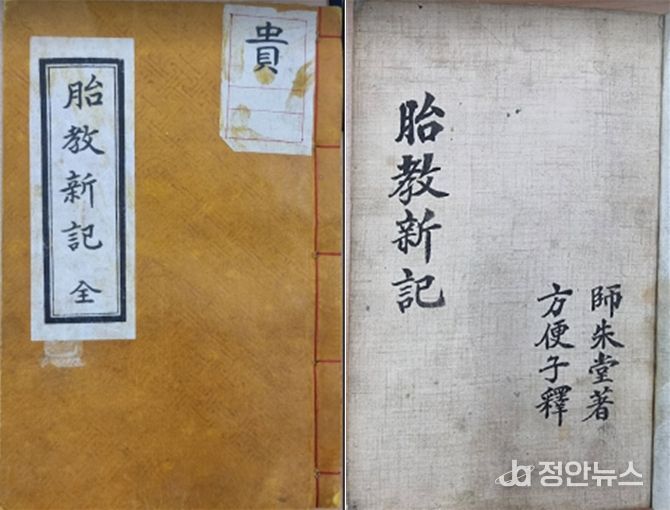 胎教新記 全
貴
胎教新記
師朱堂著
方便子釋
정안뉴스